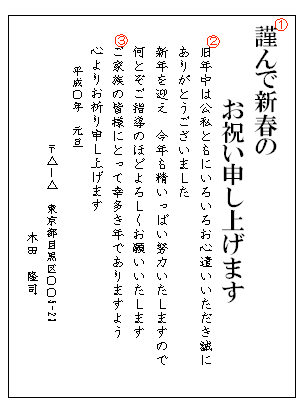 ①
謹んで新春の
お祝い申し上げます
②
旧年中は公私ともにいろいろお心遣いいただき誠に
ありがとうございました
新年を迎え　今年も精いっぱい努力いたしますので
何とぞご指導のほどよろしくお願いいたします
③
ご家族の皆様にとって幸多き年でありますよう
心よりお祈り申し上げます
平成〇年　元旦
〒△ー△　東京都目黒区〇〇5-21
木田　隆司